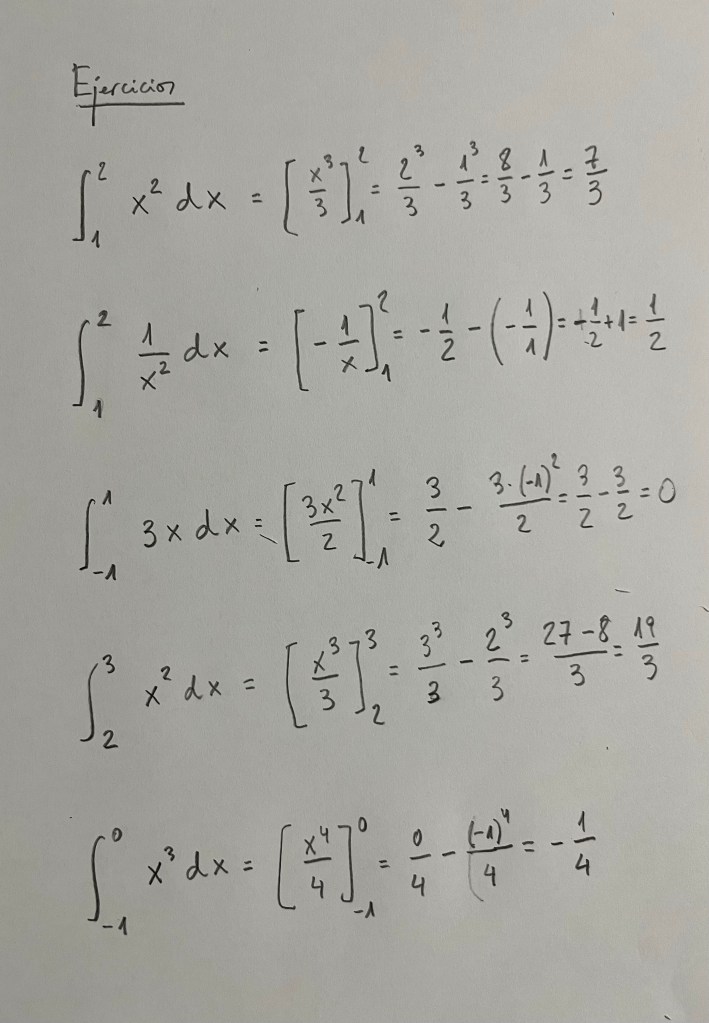 Ejercicios
∫₁² x² dx = [x³/3]₁² = 2³/3 - 1³/3 = 8/3 - 1/3 = 7/3
∫₁² 1/x² dx = [-1/x]₁² = -1/2 - (-1/1) = -1/2 + 1 = 1/2
∫₋₁¹ 3x dx = [3x²/2]₋₁¹ = 3/2 - 3·(-1)²/2 = 3/2 - 3/2 = 0
∫₂³ x² dx = [x³/3]₂³ = 3³/3 - 2³/3 = (27-8)/3 = 19/3
∫₋₁⁰ x³ dx = [x⁴/4]₋₁⁰ = 0/4 - (-1)⁴/4 = -1/4